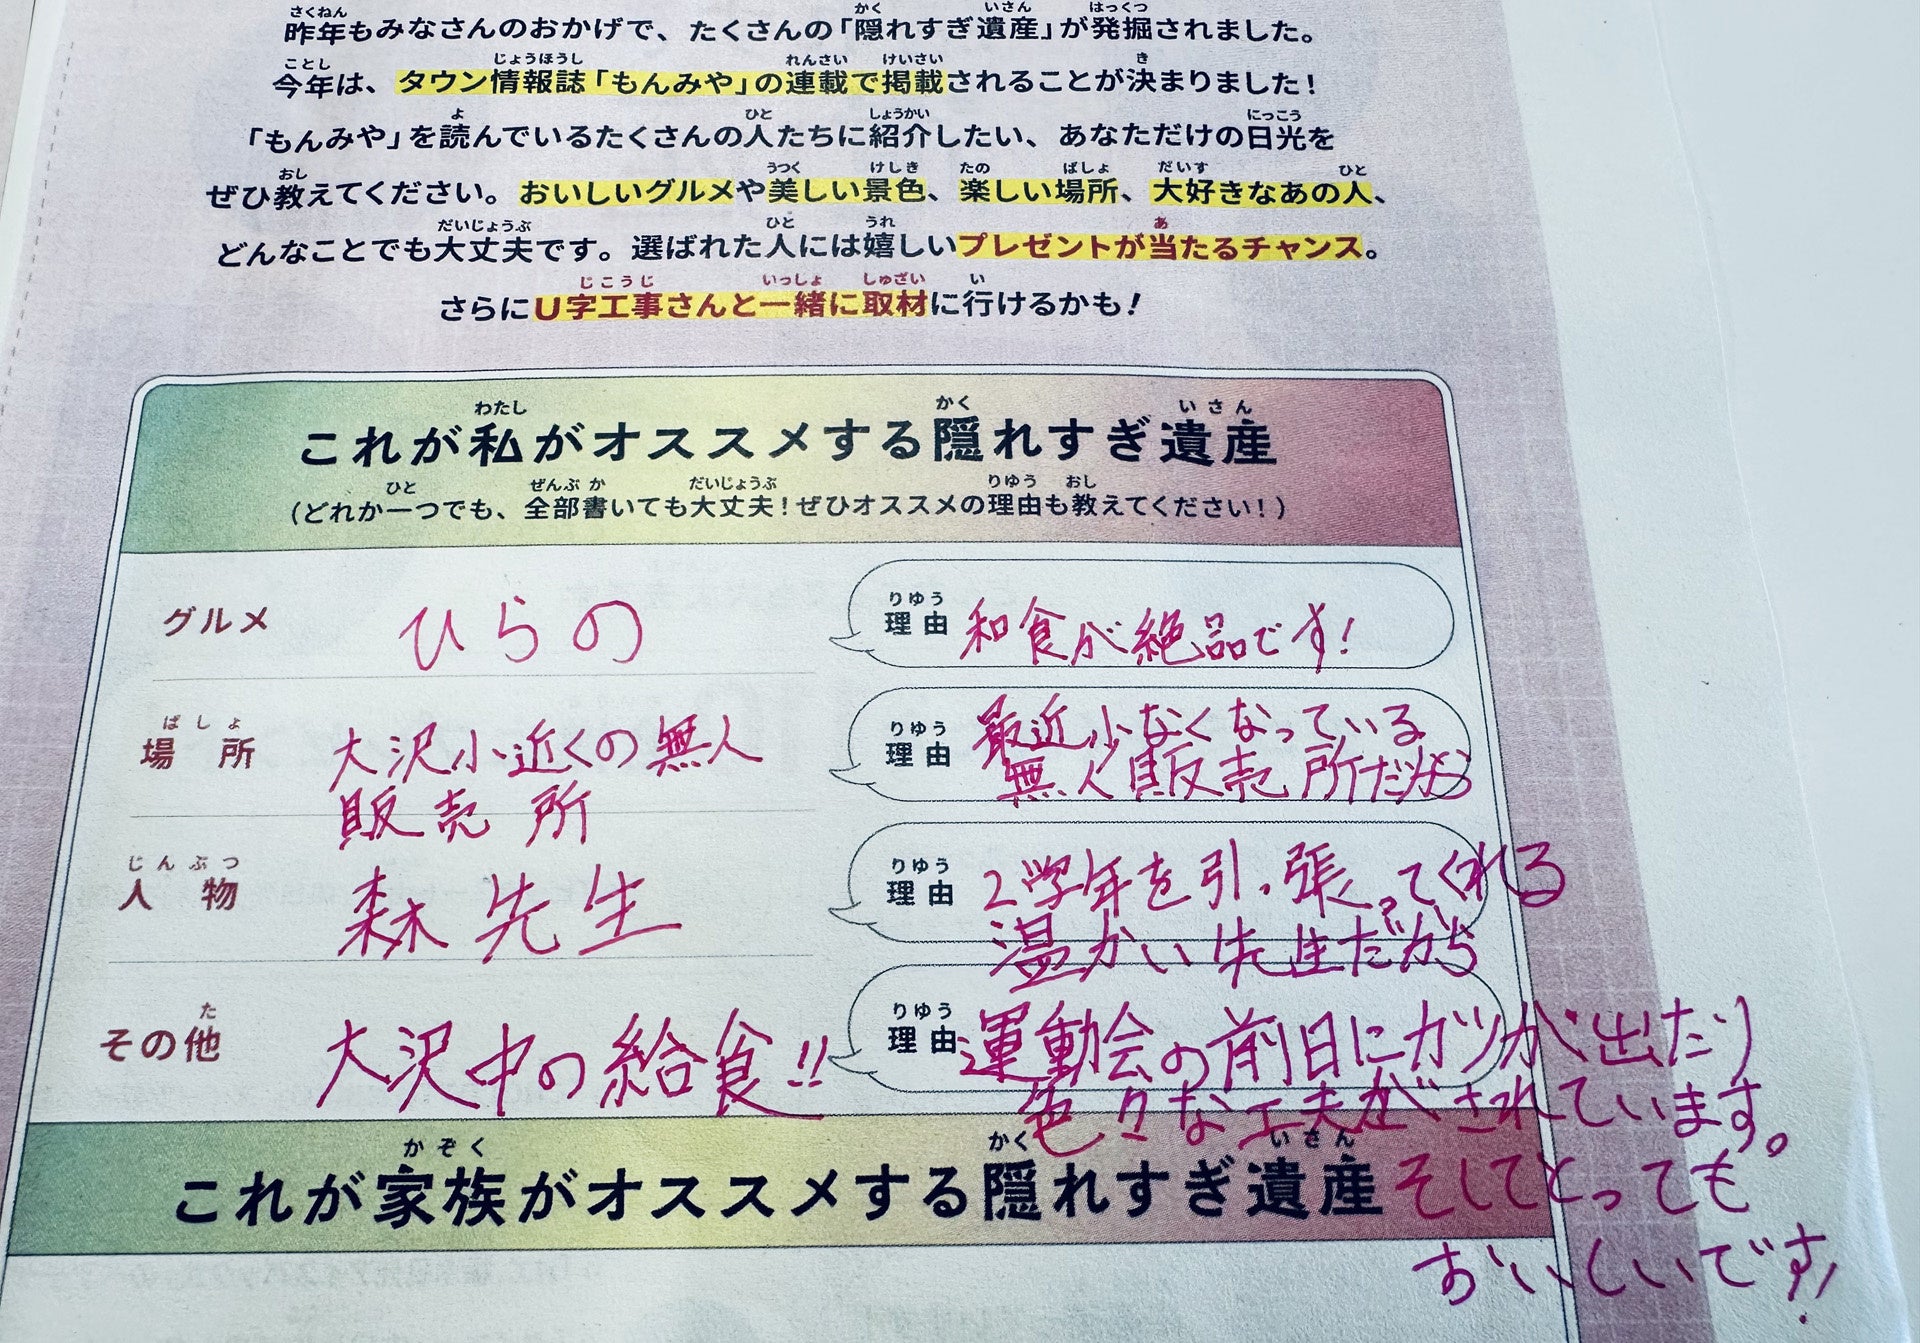 昨年もみなさんのおかげで、たくさんの「隠れすぎ遺産」が発掘されました。
今年は、タウン情報誌「もんみや」の連載で掲載されることが決まりました!
「もんみや」を読んでいるたくさんの人たちに紹介したい、あなただけの日光を
ぜひ教えてください。おいしいグルメや美しい景色、楽しい場所、大好きなあの人、
どんなことでも大丈夫です。選ばれた人には嬉しいプレゼントが当たるチャンス。
さらにU字工事さんと一緒に取材に行けるかも!
これが私がオススメする隠れすぎ遺産
(どれか一つでも、全部書いても大丈夫!ぜひオススメの理由も教えてください!)
グルメ ひらの 理由 和食が絶品です!
場所 大沢小近くの無人
販売所
理由 最近少なくなっている
無人販売所だから
人物 森先生
理由 2学年を引っ張ってくれる
温かい先生だから
その他 大沢中の給食!!
理由 運動会の前日にカツが出たり
色々な工夫がされています。
そしてとっても
おいしいです!
これが家族がオススメする隠れすぎ遺産